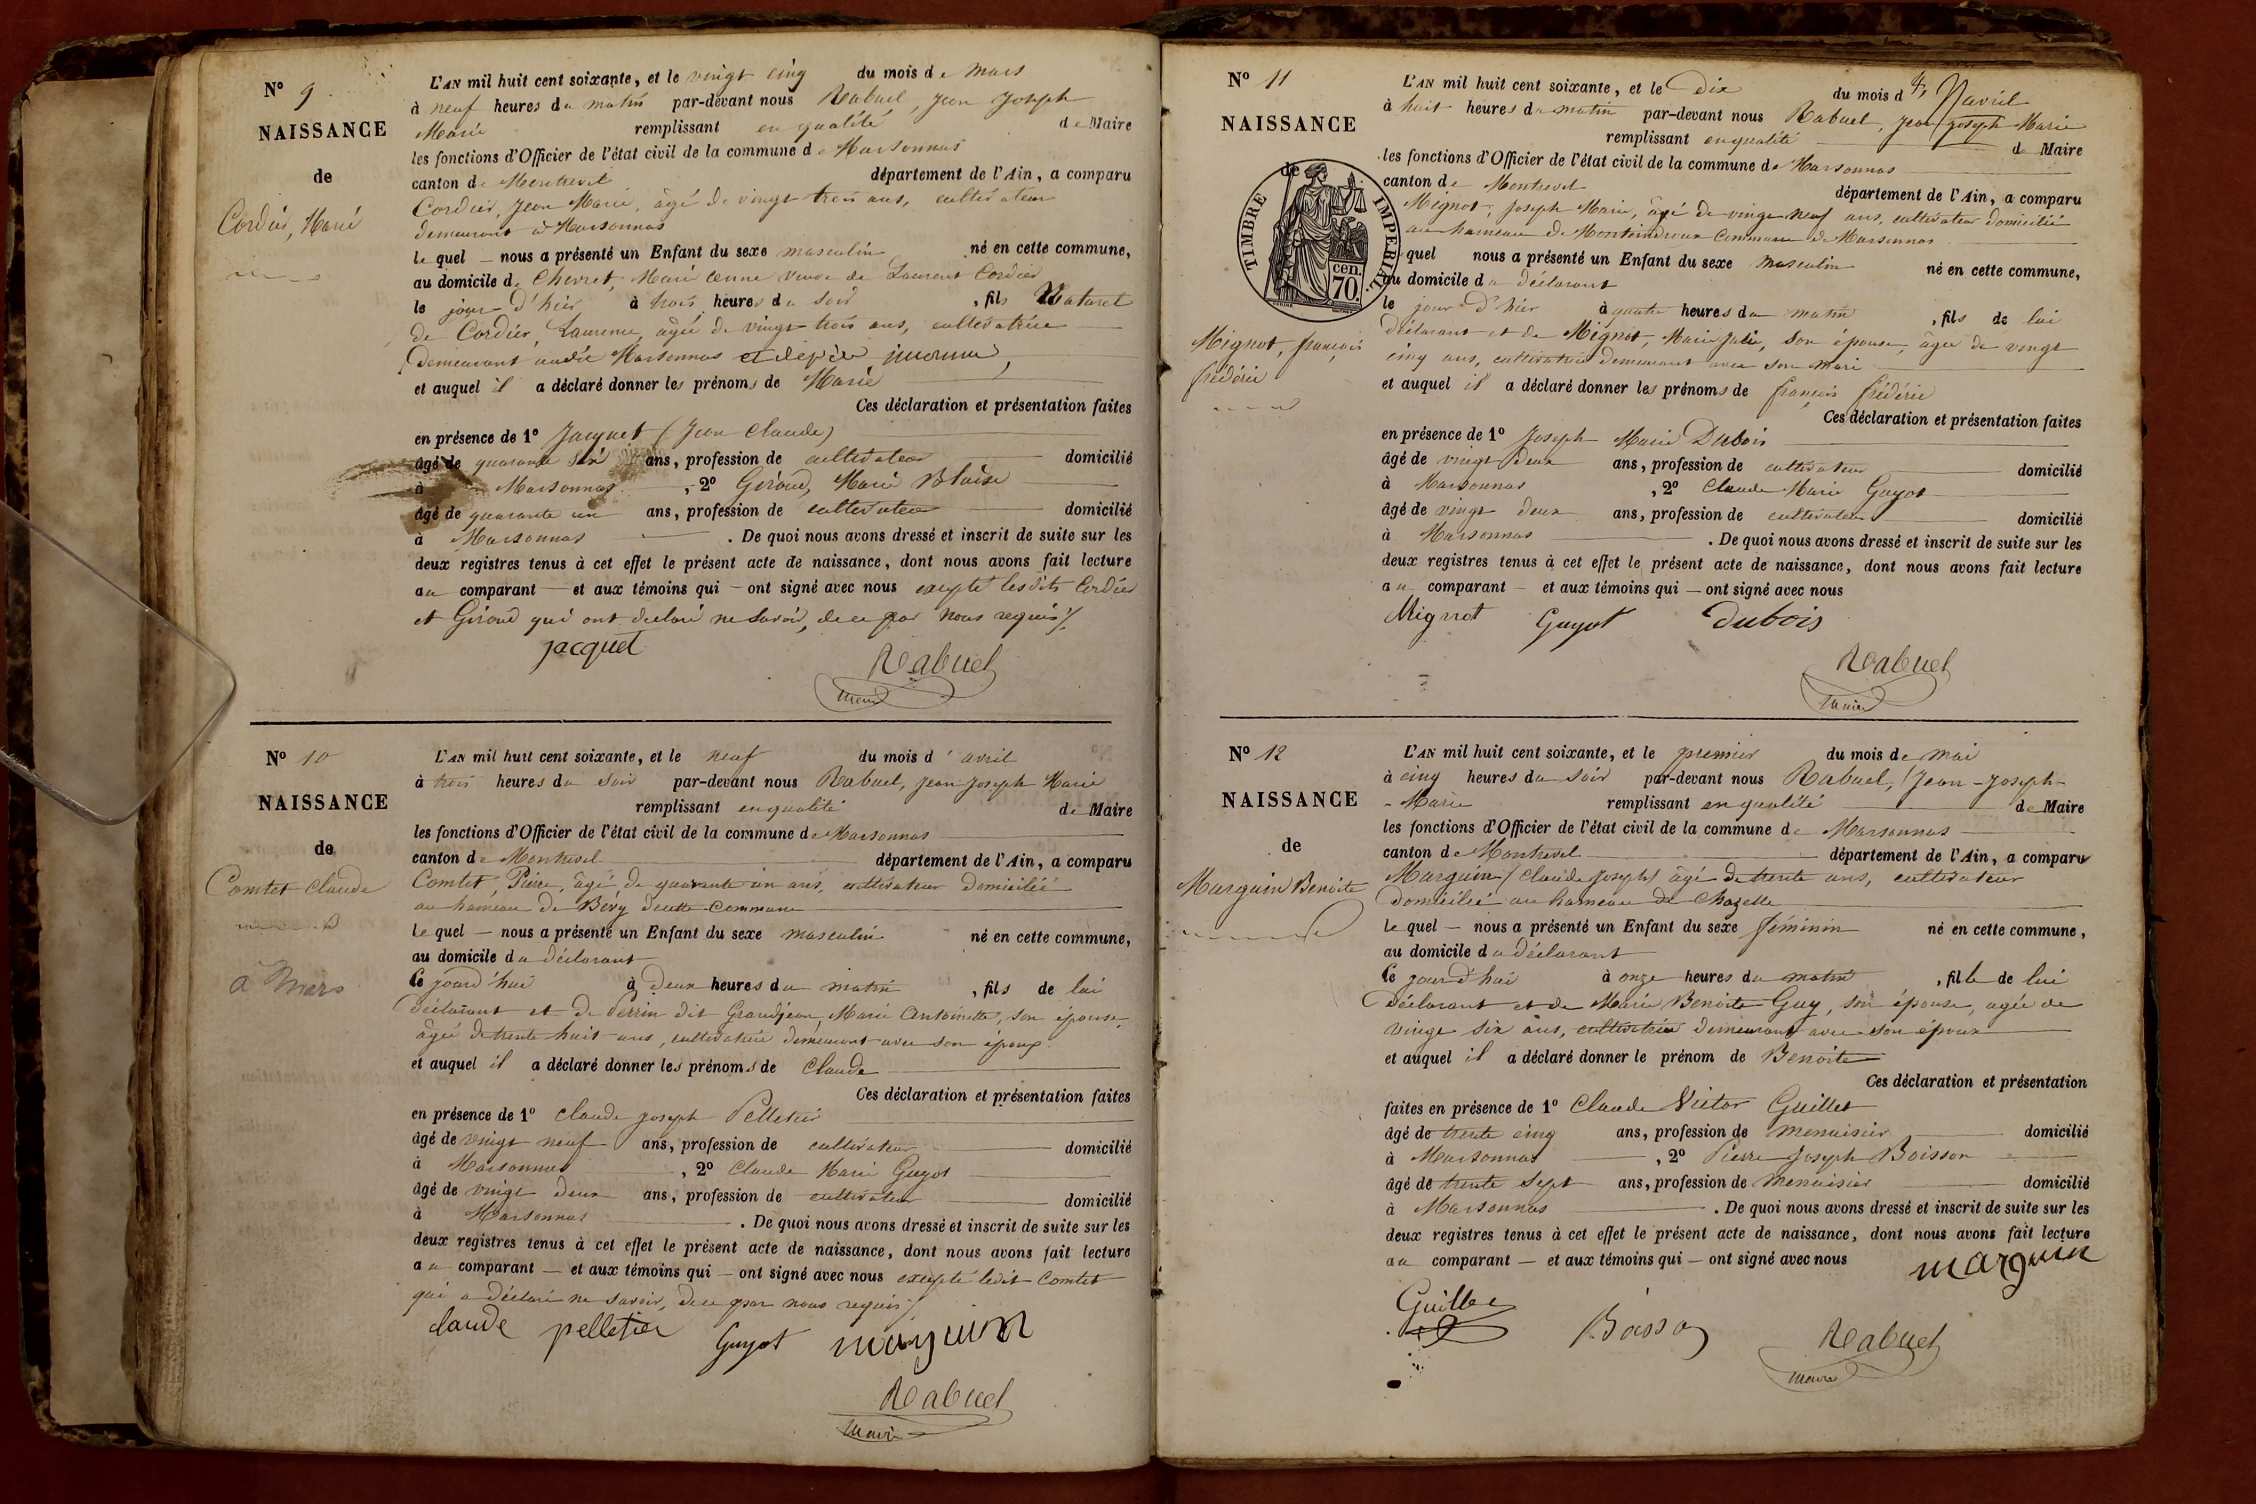 N° 9
NAISSANCE
de
Cordier, Marie
L'AN mil huit cent soixante, et le vingt cinq du mois de mars
à neuf heures du matin par-devant nous Rabuel, Jean Joseph
Marie remplissant en qualité de Maire
les fonctions d'Officier de l'état civil de la commune de Marsonnas
canton de Montrevel département de l'Ain, a comparu
Cordier, Jean Marie, âgé de vingt trois ans, cultivateur
demeurant à Marsonnas
lequel — nous a présenté un Enfant du sexe masculin né en cette commune,
au domicile de Chevret, Marie veuve de Laurent Cordier
le jour d'hier à trois heures du soir, fils Naturel
de Cordier, Laurence, agée de vingt trois ans, cultivatrice
demeurant audit Marsonnas et de père inconnu,
et auquel il a déclaré donner les prénoms de Marie
Ces déclaration et présentation faites
en présence de 1° Jacquet (Jean Claude)
âgé de quarante six ans, profession de cultivateur domicilié
à Marsonnas, 2° Giroud, Marie Blaise
âgé de quarante un ans, profession de cultivateur domicilié
à Marsonnas. De quoi nous avons dressé et inscrit de suite sur les
deux registres tenus à cet effet le présent acte de naissance, dont nous avons fait lecture
au comparant — et aux témoins qui — ont signé avec nous excepté lesdits Cordier
et Giroud qui ont déclaré ne savoir, de ce par nous requis /.
jacquet
Rabuel
maire
N° 10
NAISSANCE
de
Comtet Claude
à Mars
L'AN mil huit cent soixante, et le neuf du mois d'avril
à trois heures du soir par-devant nous Rabuel, Jean Joseph Marie
remplissant en qualité de Maire
les fonctions d'Officier de l'état civil de la commune de Marsonnas
canton de Montrevel département de l'Ain, a comparu
Comtet, Pierre, âgé de quarante un ans, cultivateur domicilié
au hameau de Bévy de cette Commune
lequel — nous a présenté un Enfant du sexe masculin né en cette commune,
au domicile du déclarant
Ce jourd'hui à deux heures du matin, fils de lui
déclarant et de Perrin dit Grandjean, Marie Antoinette, son épouse,
âgée de trente huit ans, cultivatrice demeurant avec son époux
et auquel il a déclaré donner les prénoms de Claude
Ces déclaration et présentation faites
en présence de 1° Claude Joseph Pelletier
âgé de vingt neuf ans, profession de cultivateur domicilié
à Marsonnas, 2° Claude Marie Guyot
âgé de vingt deux ans, profession de cultivateur domicilié
à Marsonnas. De quoi nous avons dressé et inscrit de suite sur les
deux registres tenus à cet effet le présent acte de naissance, dont nous avons fait lecture
au comparant — et aux témoins qui — ont signé avec nous excepté ledit Comtet
qui a déclaré ne savoir, de ce par nous requis /.
claude pelletier Guyot marguin
Rabuel
maire
N° 11
NAISSANCE
de
TIMBRE IMPERIAL
70 cen.
Mignot, françois
frédéric
L'AN mil huit cent soixante, et le Dix du mois d'avril
à huit heures du matin par-devant nous Rabuel, Jean Joseph Marie
remplissant en qualité de Maire
les fonctions d'Officier de l'état civil de la commune de Marsonnas
canton de Montrevel département de l'Ain, a comparu
Mignot, Joseph Marie, âgé de vingt neuf ans, cultivateur domicilié
au hameau de Montaindroux Commune de Marsonnas
quel nous a présenté un Enfant du sexe masculin né en cette commune,
au domicile du déclarant
le jour d'hier à quatre heures du matin, fils de lui
déclarant et de Mignot, Marie Julie, son épouse, âgée de vingt
cinq ans, cultivatrice demeurant avec son mari
et auquel il a déclaré donner les prénoms de françois frédéric
Ces déclaration et présentation faites
en présence de 1° Joseph Marie Dubois
âgé de vingt deux ans, profession de cultivateur domicilié
à Marsonnas, 2° Claude Marie Guyot
âgé de vingt deux ans, profession de cultivateur domicilié
à Marsonnas. De quoi nous avons dressé et inscrit de suite sur les
deux registres tenus à cet effet le présent acte de naissance, dont nous avons fait lecture
au comparant — et aux témoins qui — ont signé avec nous
Mignot Guyot Dubois
Rabuel
maire
N° 12
NAISSANCE
de
Marguin Benoite
L'AN mil huit cent soixante, et le premier du mois de mai
à cinq heures du soir par-devant nous Rabuel, Jean-Joseph-
-Marie remplissant en qualité de Maire
les fonctions d'Officier de l'état civil de la commune de Marsonnas
canton de Montrevel département de l'Ain, a comparu
Marguin (Claude Joseph) âgé de trente ans, cultivateur
domicilié au hameau de Chazelle
lequel — nous a présenté un Enfant du sexe féminin né en cette commune,
au domicile du déclarant
Ce jourd'hui à onze heures du matin, fille de lui
déclarant et de Marie Benoite Guy, son épouse, agée de
vingt six ans, cultivatrice demeurant avec son époux
et auquel il a déclaré donner le prénom de Benoite
Ces déclaration et présentation
faites en présence de 1° Claude Victor Guillet
âgé de trente cinq ans, profession de menuisier domicilié
à Marsonnas, 2° Pierre Joseph Boisson
âgé de trente sept ans, profession de menuisier domicilié
à Marsonnas. De quoi nous avons dressé et inscrit de suite sur les
deux registres tenus à cet effet le présent acte de naissance, dont nous avons fait lecture
au comparant — et aux témoins qui — ont signé avec nous marguin
Guillet Boisson Rabuel
maire